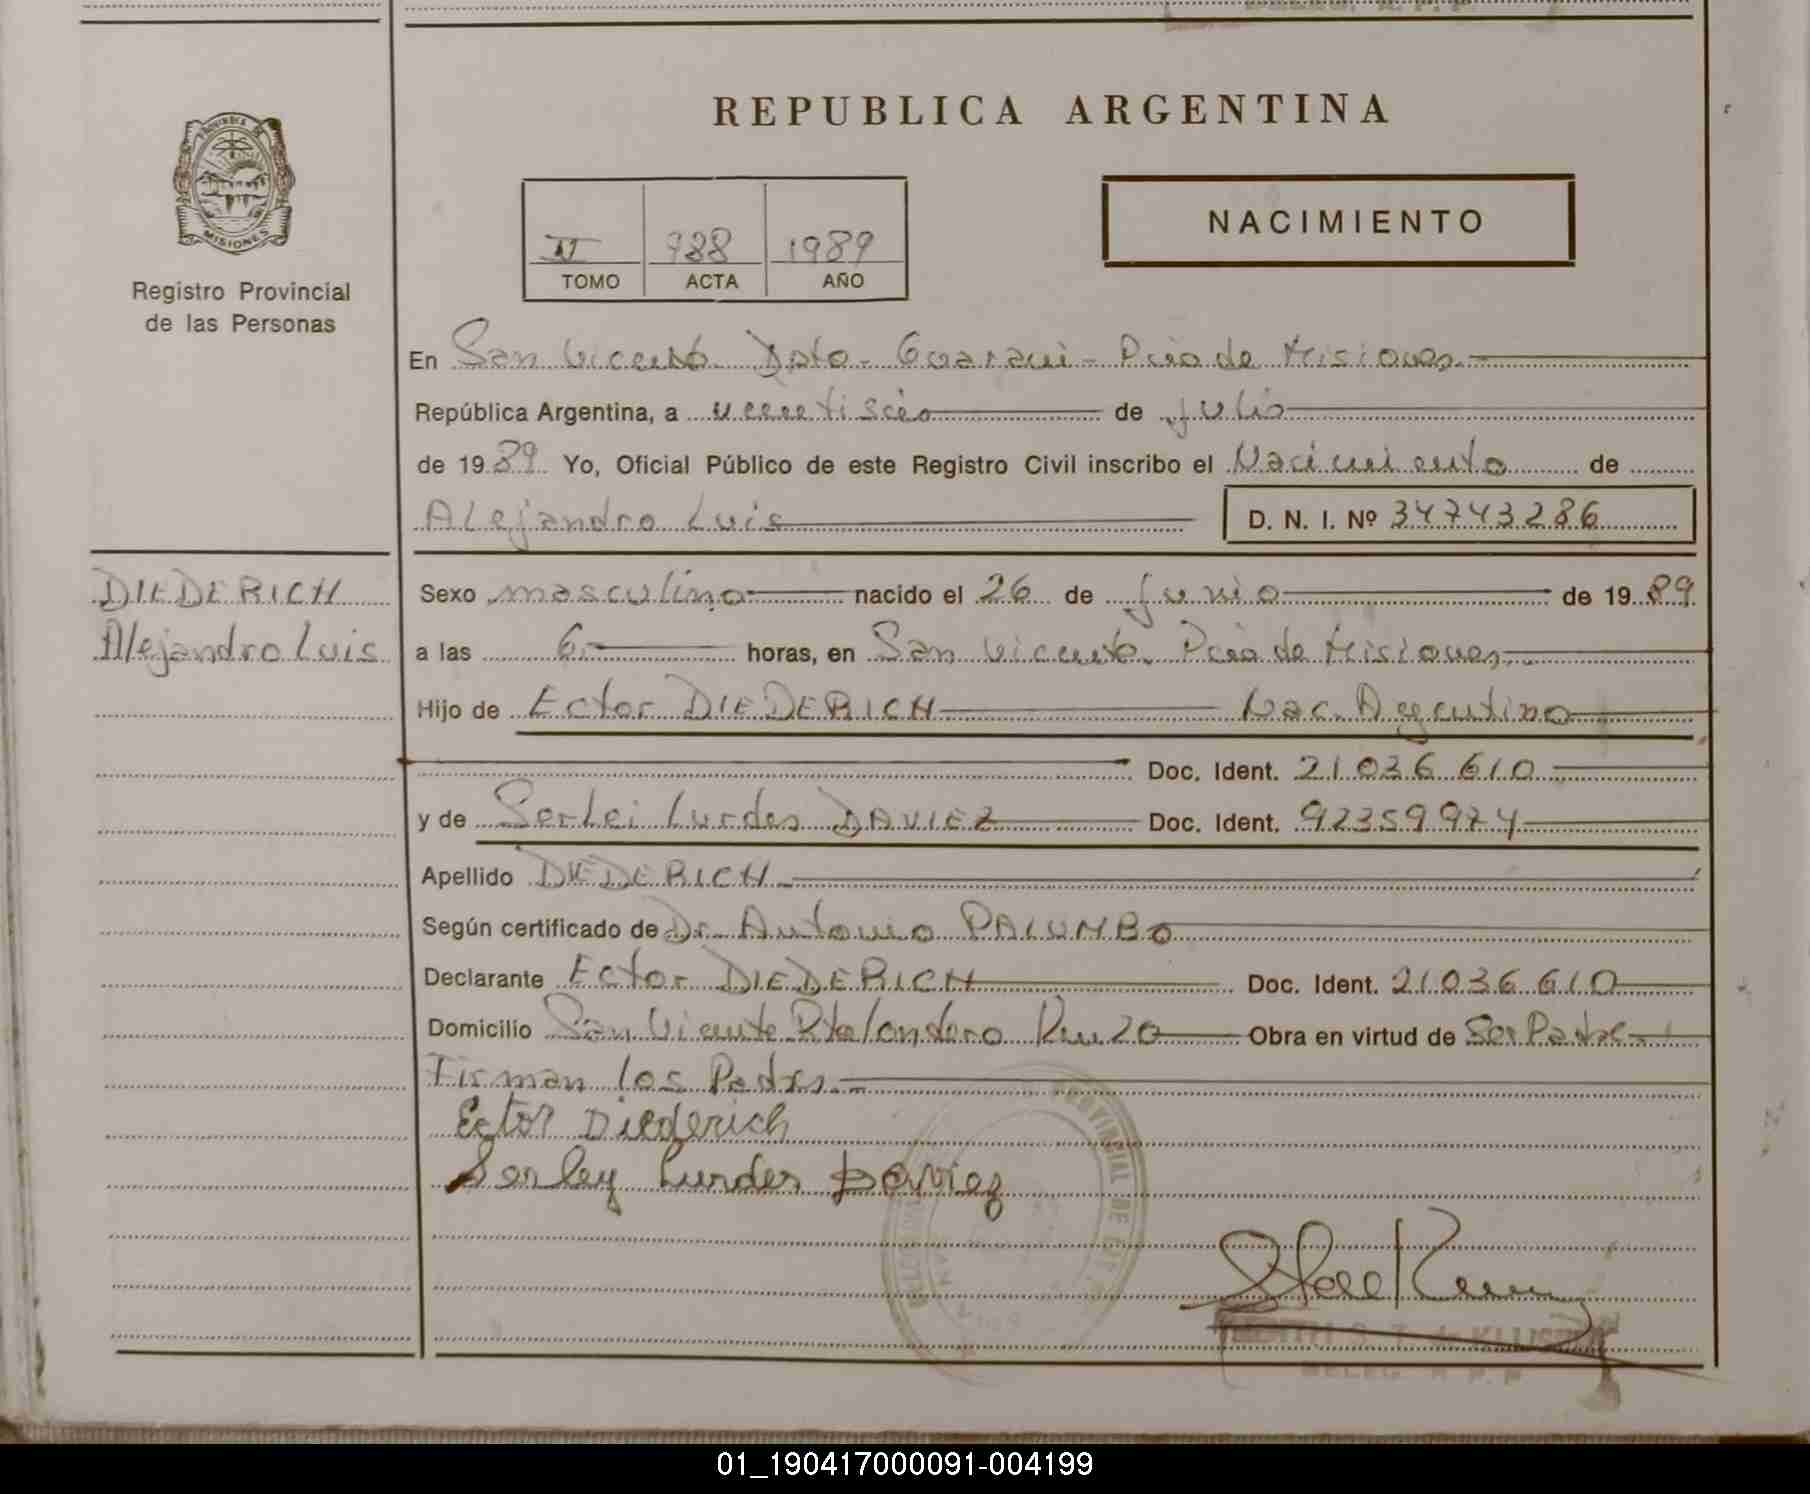 REPUBLICA ARGENTINA
PROVINCIA DE
MISIONES
Registro Provincial
de las Personas
II 988 1989
TOMO ACTA AÑO
NACIMIENTO
En San Vicente Dpto- Guarani- Pcia de Misiones
República Argentina, a veintiseis de Julio
de 1989 Yo, Oficial Público de este Registro Civil inscribo el Nacimiento de
Alejandro Luis D. N. I. Nº 34743286
DIEDERICH
Alejandro Luis
Sexo masculino nacido el 26 de Junio de 1989
a las 6 horas, en San Vicente Pcia de Misiones
Hijo de Ector DIEDERICH Nac. Argentino
Doc. Ident. 21036610
y de Serlei Lurdes DAVIEZ Doc. Ident. 92359974
Apellido DIEDERICH
Según certificado de Dr. Antonio PALUMBO
Declarante Ector DIEDERICH Doc. Ident. 21036610
Domicilio San Vicente Londero Obra en virtud de Ser Padre
Firman los Padres
Ector Diederich
Serley Lurdes Daviez
PROVINCIAL DE
01_190417000091-004199